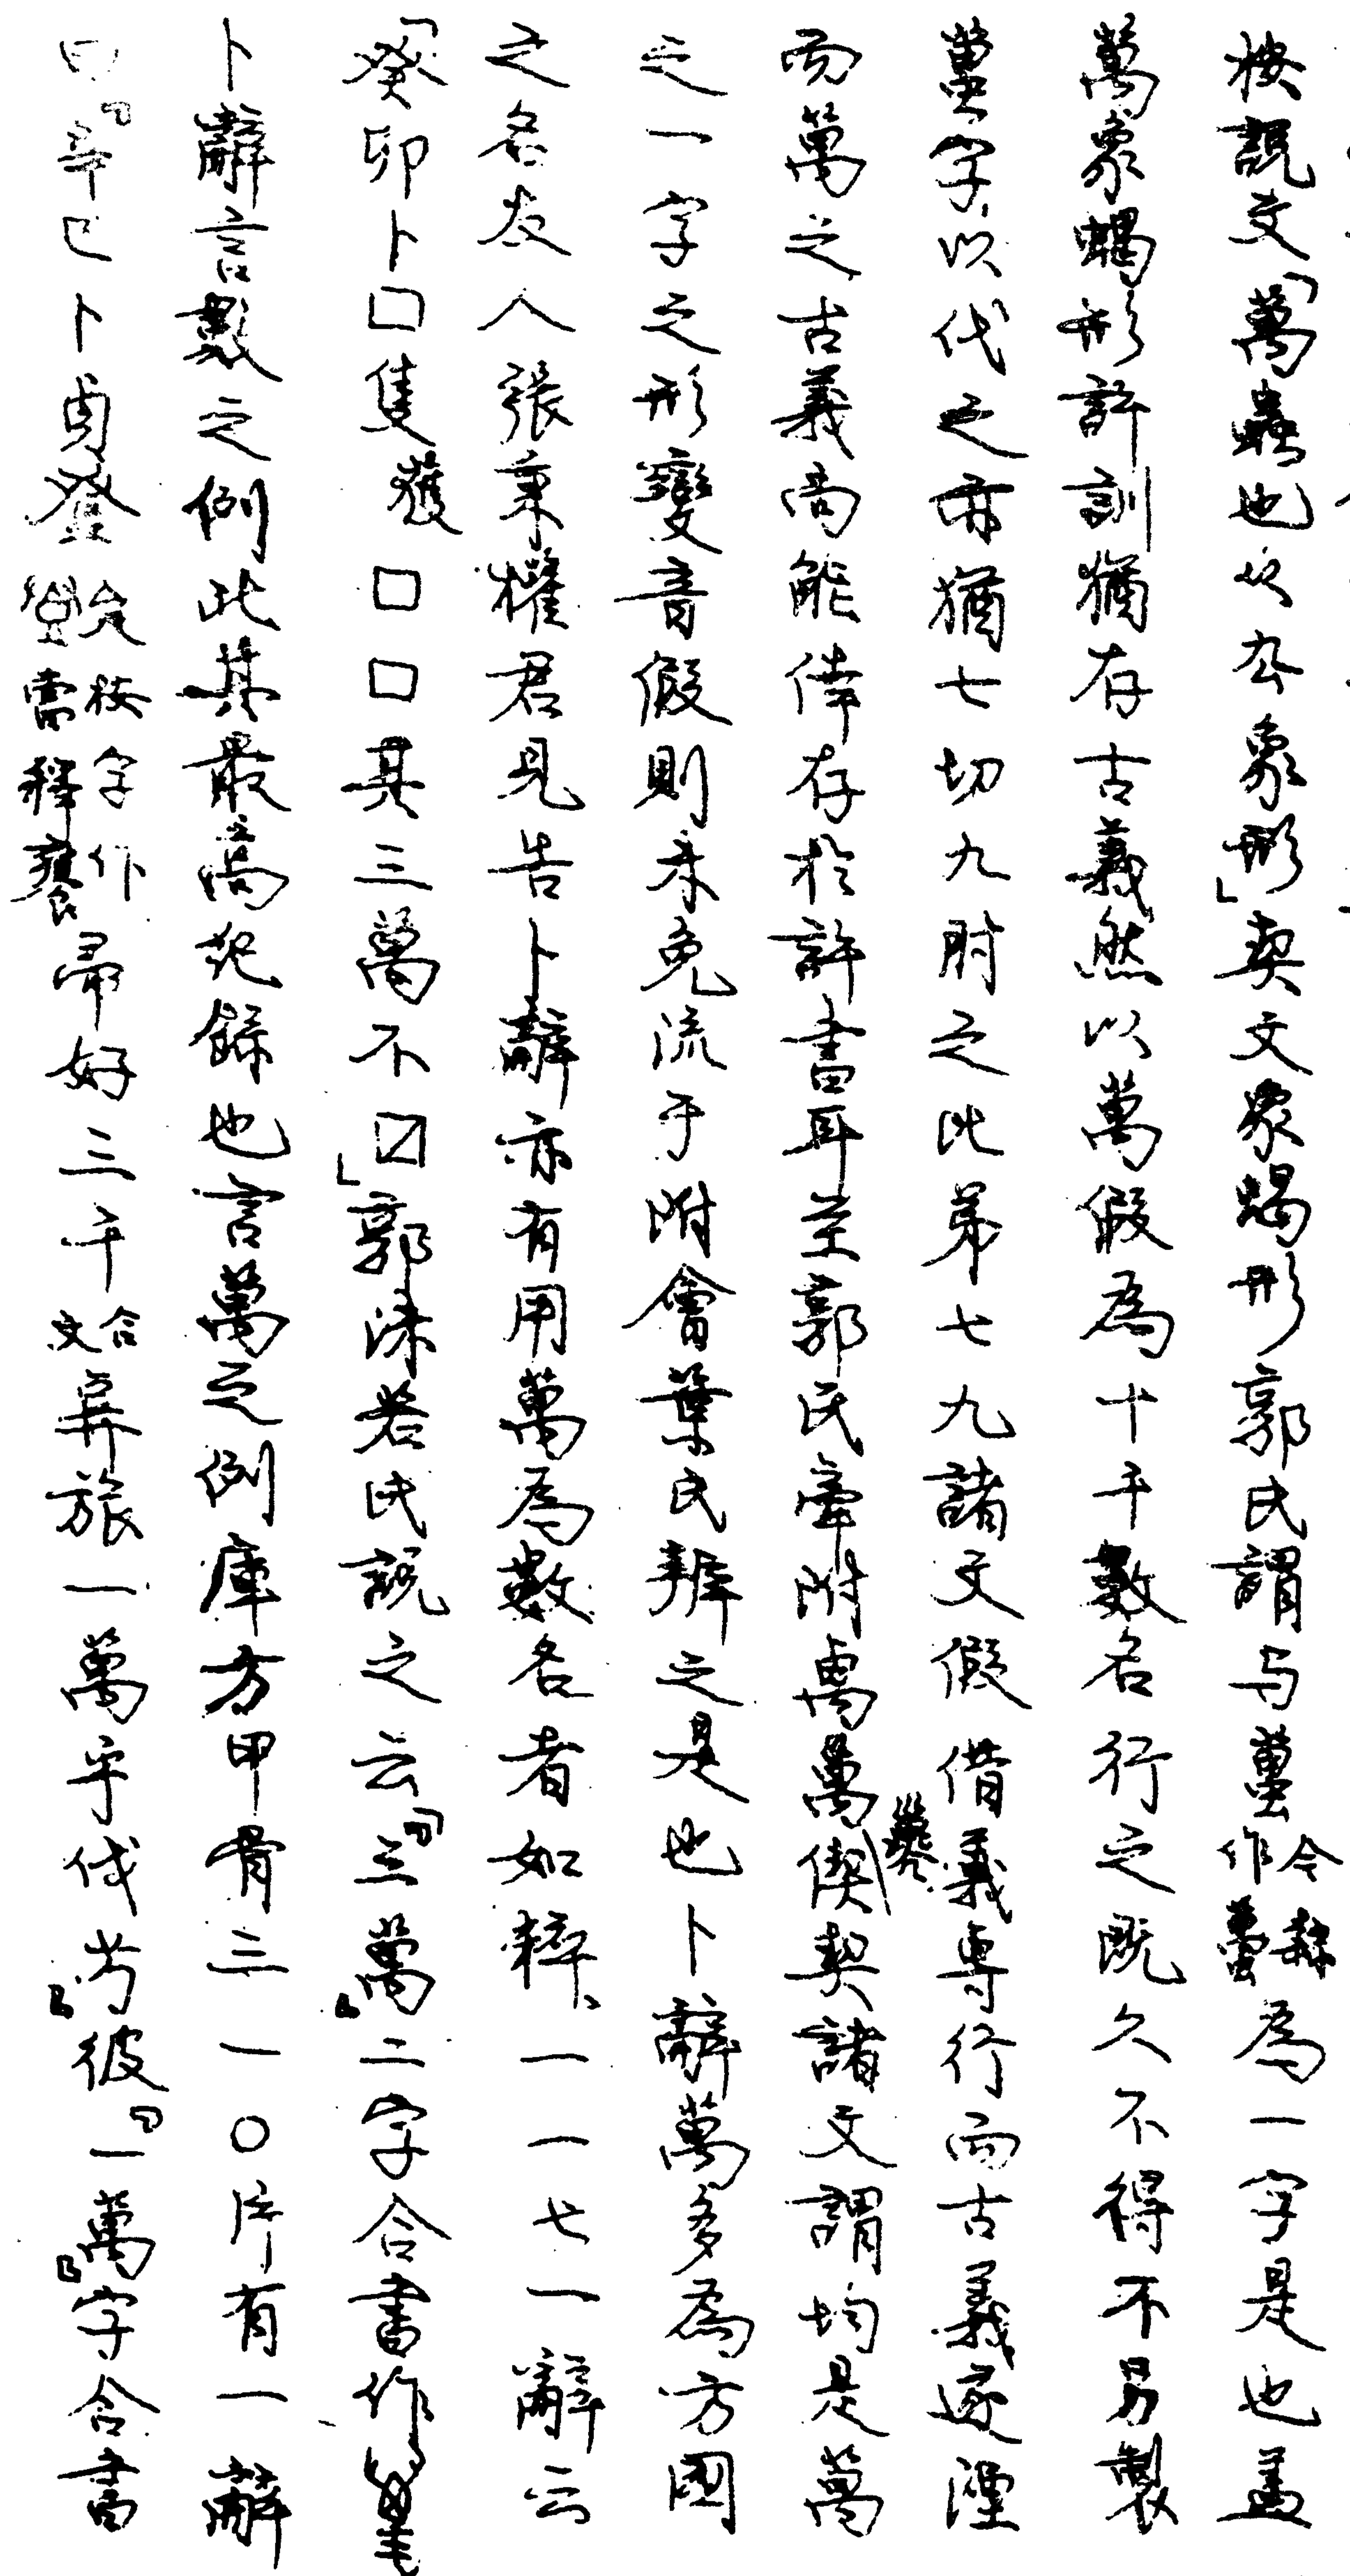 按說文「萬蟲也从厹象形」契文象蝎形郭氏謂与蠆今隸作蠆為一字是也蓋
萬象蝎形許訓猶存古義然以萬假為十千數名行之既久不得不另製
蠆字以代之亦猶七切九肘之比弟七九諸文假借義專行而古義遂湮
而萬之古義尚能倖存於許書耳至郭氏牽附禼萬偰契諸文謂均是萬
之一字之形變音假則未免流于附會葉氏辨之是也卜辭萬多為方國
之名友人張秉權君見告卜辭亦有用萬為數名者如粹、一一七一辭云
「癸卯卜□隻獲□□其三萬不□」郭沫若氏說之云「三萬」二字合書作
卜辭言數之例此其最高紀錄也言萬之例庫方甲骨三一〇片有一辭
曰「辛巳卜貞登㞢按字作當釋饔帚好三千合文㠱旅一萬乎伐𢀛」彼「一萬」字合書